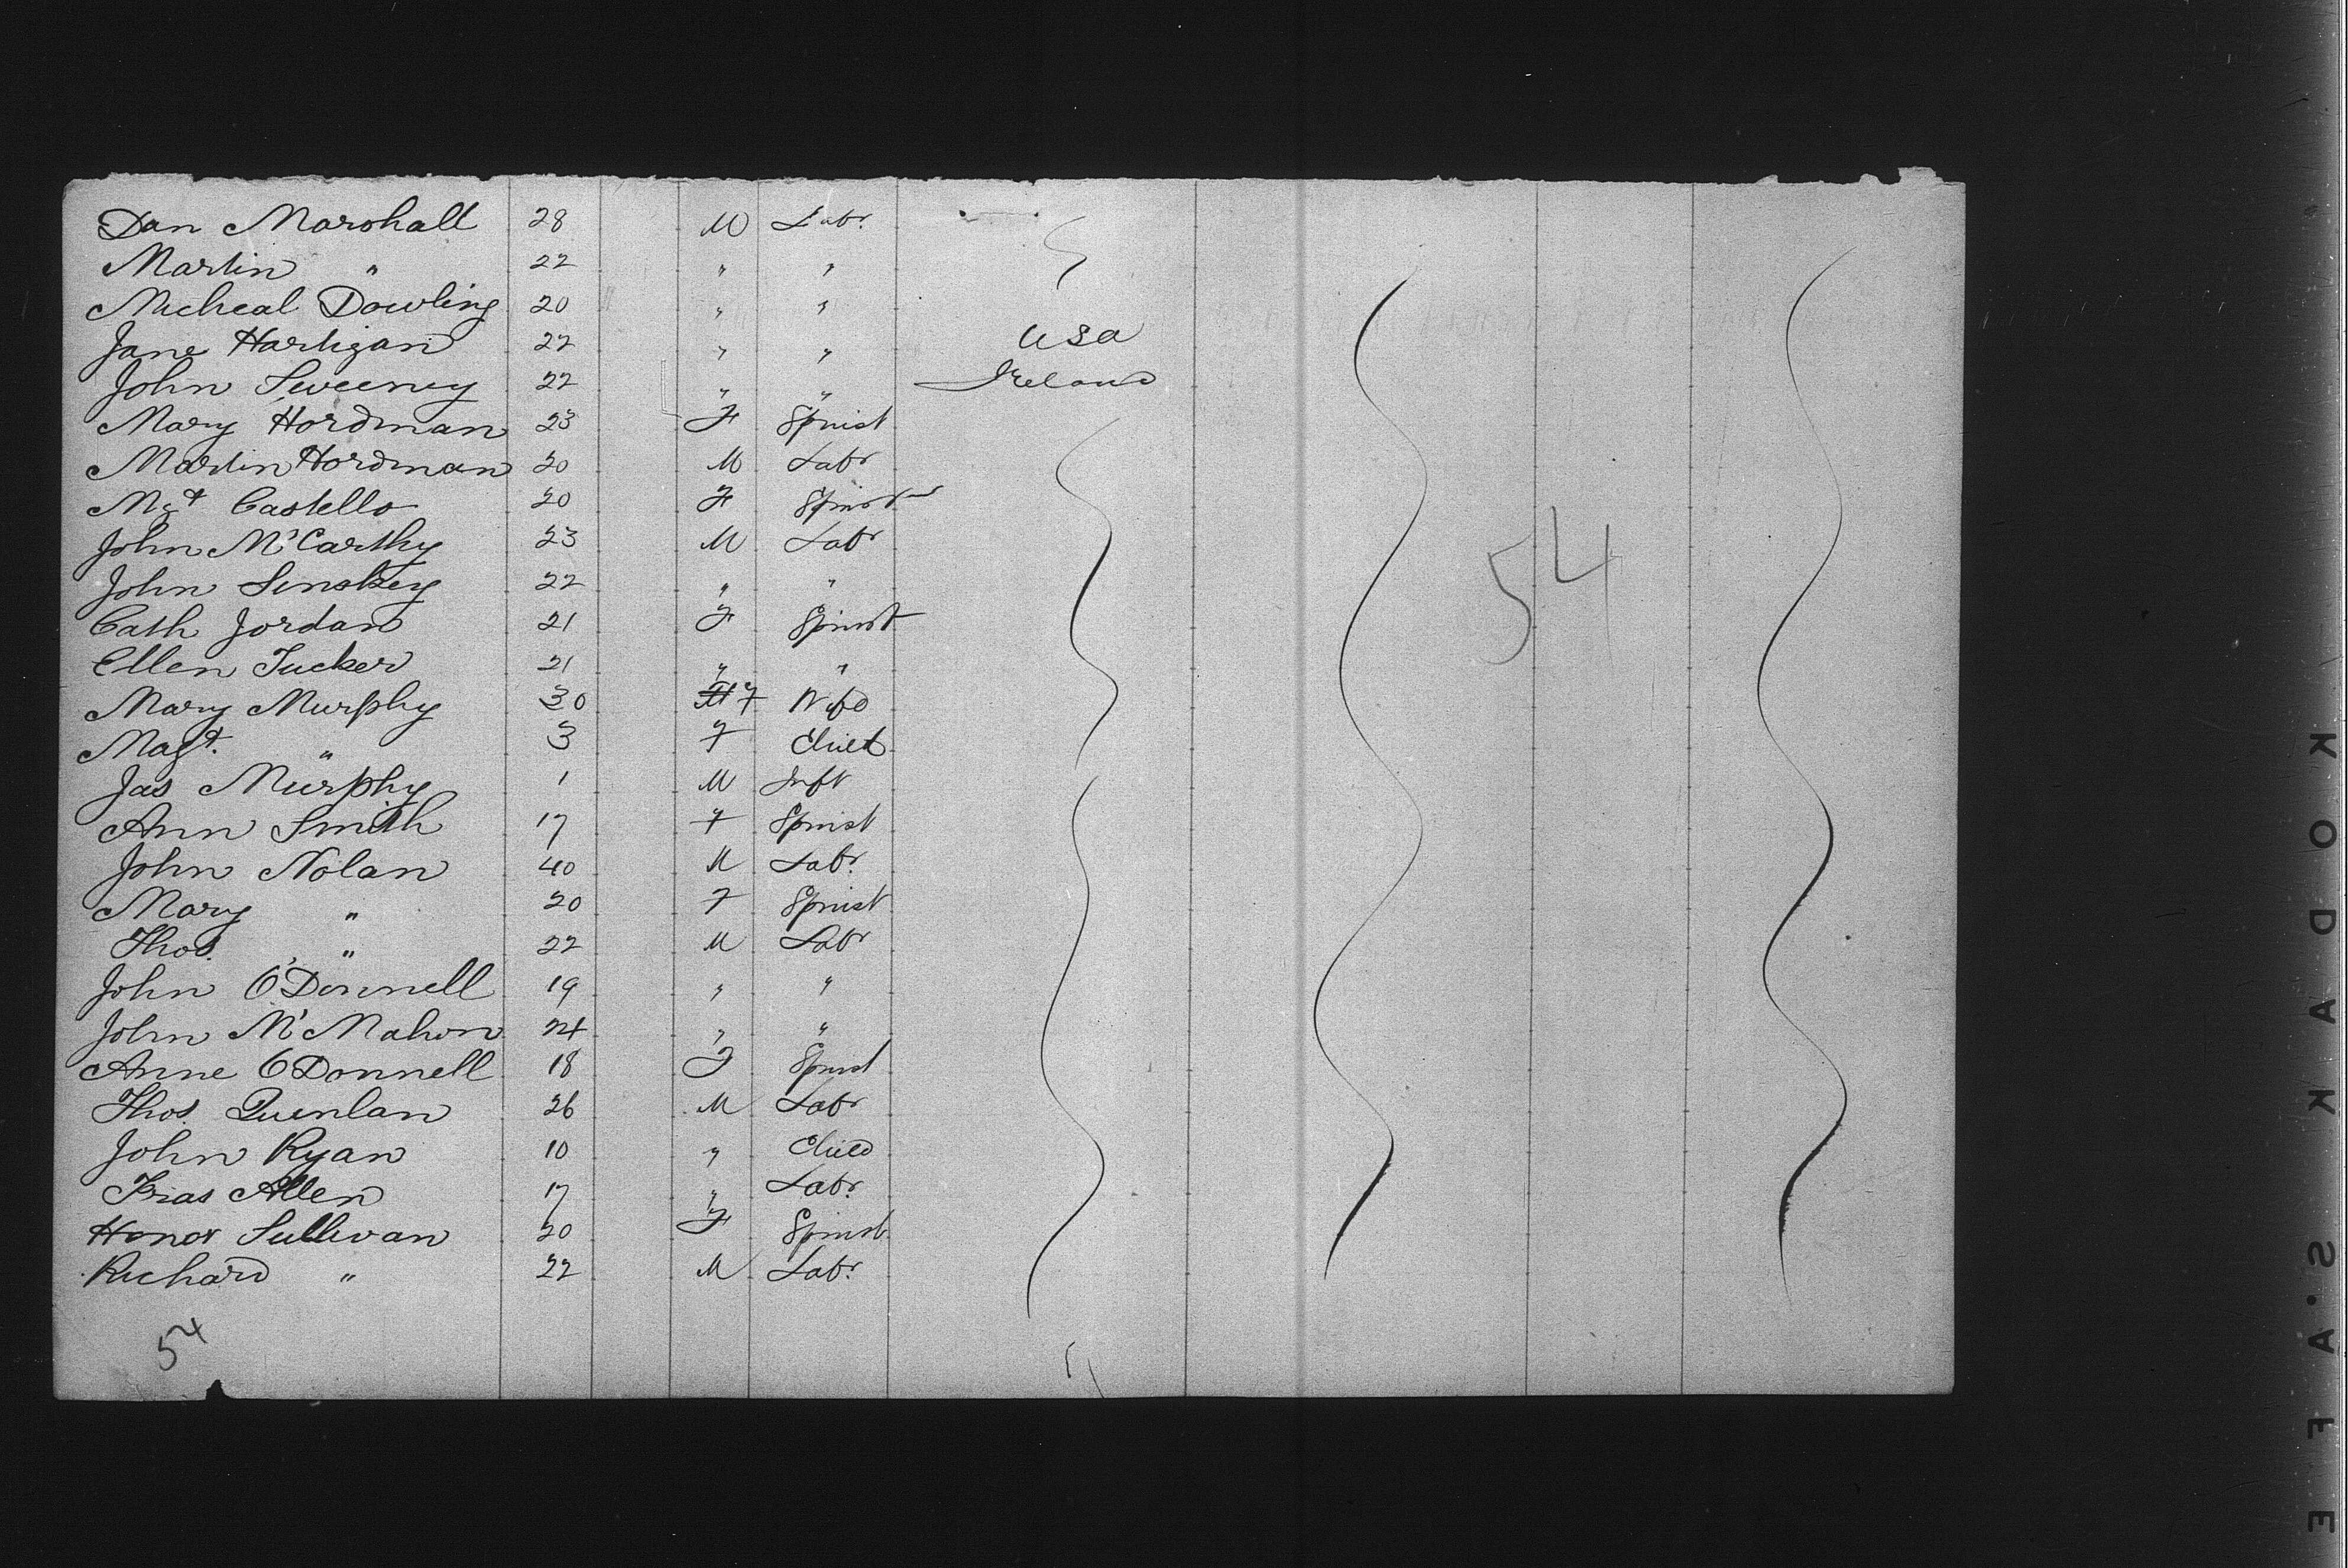 Dan Marshall 28 M Labr.
Martin " 22 " "
Micheal Dowling 20 " "
Jane Hartigan 22 " " USA
John Sweeney 22 " " Ireland
Mary Hordman 23 F Spinst
Martin Hordman 20 M Labr
Mgt Costello 20 F Spinst
John McCarthy 23 M Labr
John Linskey 22 " "
Cath Jordan 21 F Spinst
Ellen Tucker 21 " "
Mary Murphy 30 F Wife
Magt. " 3 F Child
Jas Murphy 1 M Inft
Ann Smith 17 F Spinst
John Nolan 40 M Labr.
Mary " 20 F Spinst
Thos. " 22 M Labr
John O'Donnell 19 " "
John McMahon 24 " "
Anne O'Donnell 18 F Spinst
Thos. Quinlan 26 M Labr
John Ryan 10 " Child
Allen 17 " Labr.
Honor Sullivan 20 F Spinst
Richard " 22 M Labr.
54
54
KODAK S.A.F.E